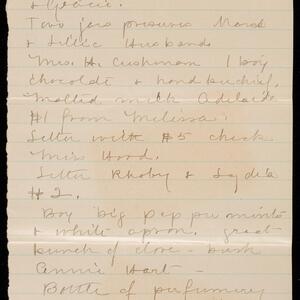 & Gracie.
Two jars preserves Maud
& Lillie Husband
Mrs. H. Cushman 1 box
chocolate & handkerchief.
Malted milk Adelaide
#1 from Melissa.
Letter with #5 check
Miss Hood.
Letter Rhoby & Lydia
#2.
Box big peppermints
& white apron, great
bunch of clove-
Annie Hart -
Bottle of perfumery